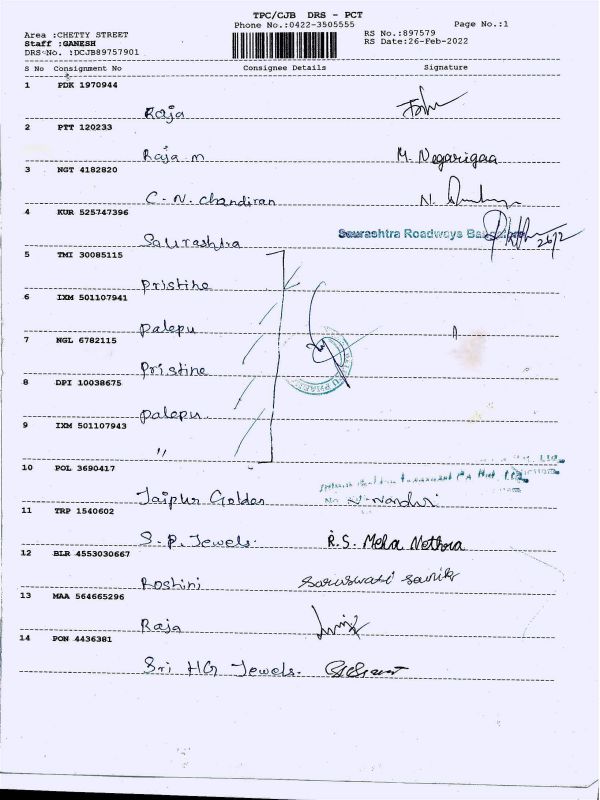 TPC/CJB DRS - PCT
Phone No.:0422-3505555 Page No.:1
Area :CHETTY STREET RS No.:897579
Staff :GANESH RS Date:26-Feb-2022
DRS No. :DCJB89757901
S No Consignment No Consignee Details Signature
1 PDK 1970944
Raja
2 PTT 120233
Raja m M. Nagarigaa
3 NGT 4182820
C. N. Chandiran N.
4 KUR 525747396
Saurashtra Saurashtra Roadways 26/2
5 TMI 30085115
Pristine
6 IXM 501107941
palepu
7 NGL 6782115
Pristine
8 DPI 10038675
palepu
9 IXM 501107943
"
10 POL 3690417
Jaipur Golden
11 TRP 1540602
S.P. Jewels. R.S. Meha Nethra
12 BLR 4553030667
Roshini Saruswati
13 MAA 564665296
Raja
14 PON 4436381
Sri HG Jewels.